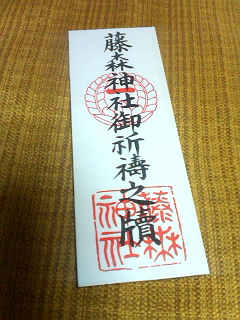 藤森神社御祈祷之牘
藤森
神社